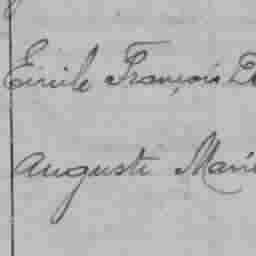 Emile François
Auguste Marie